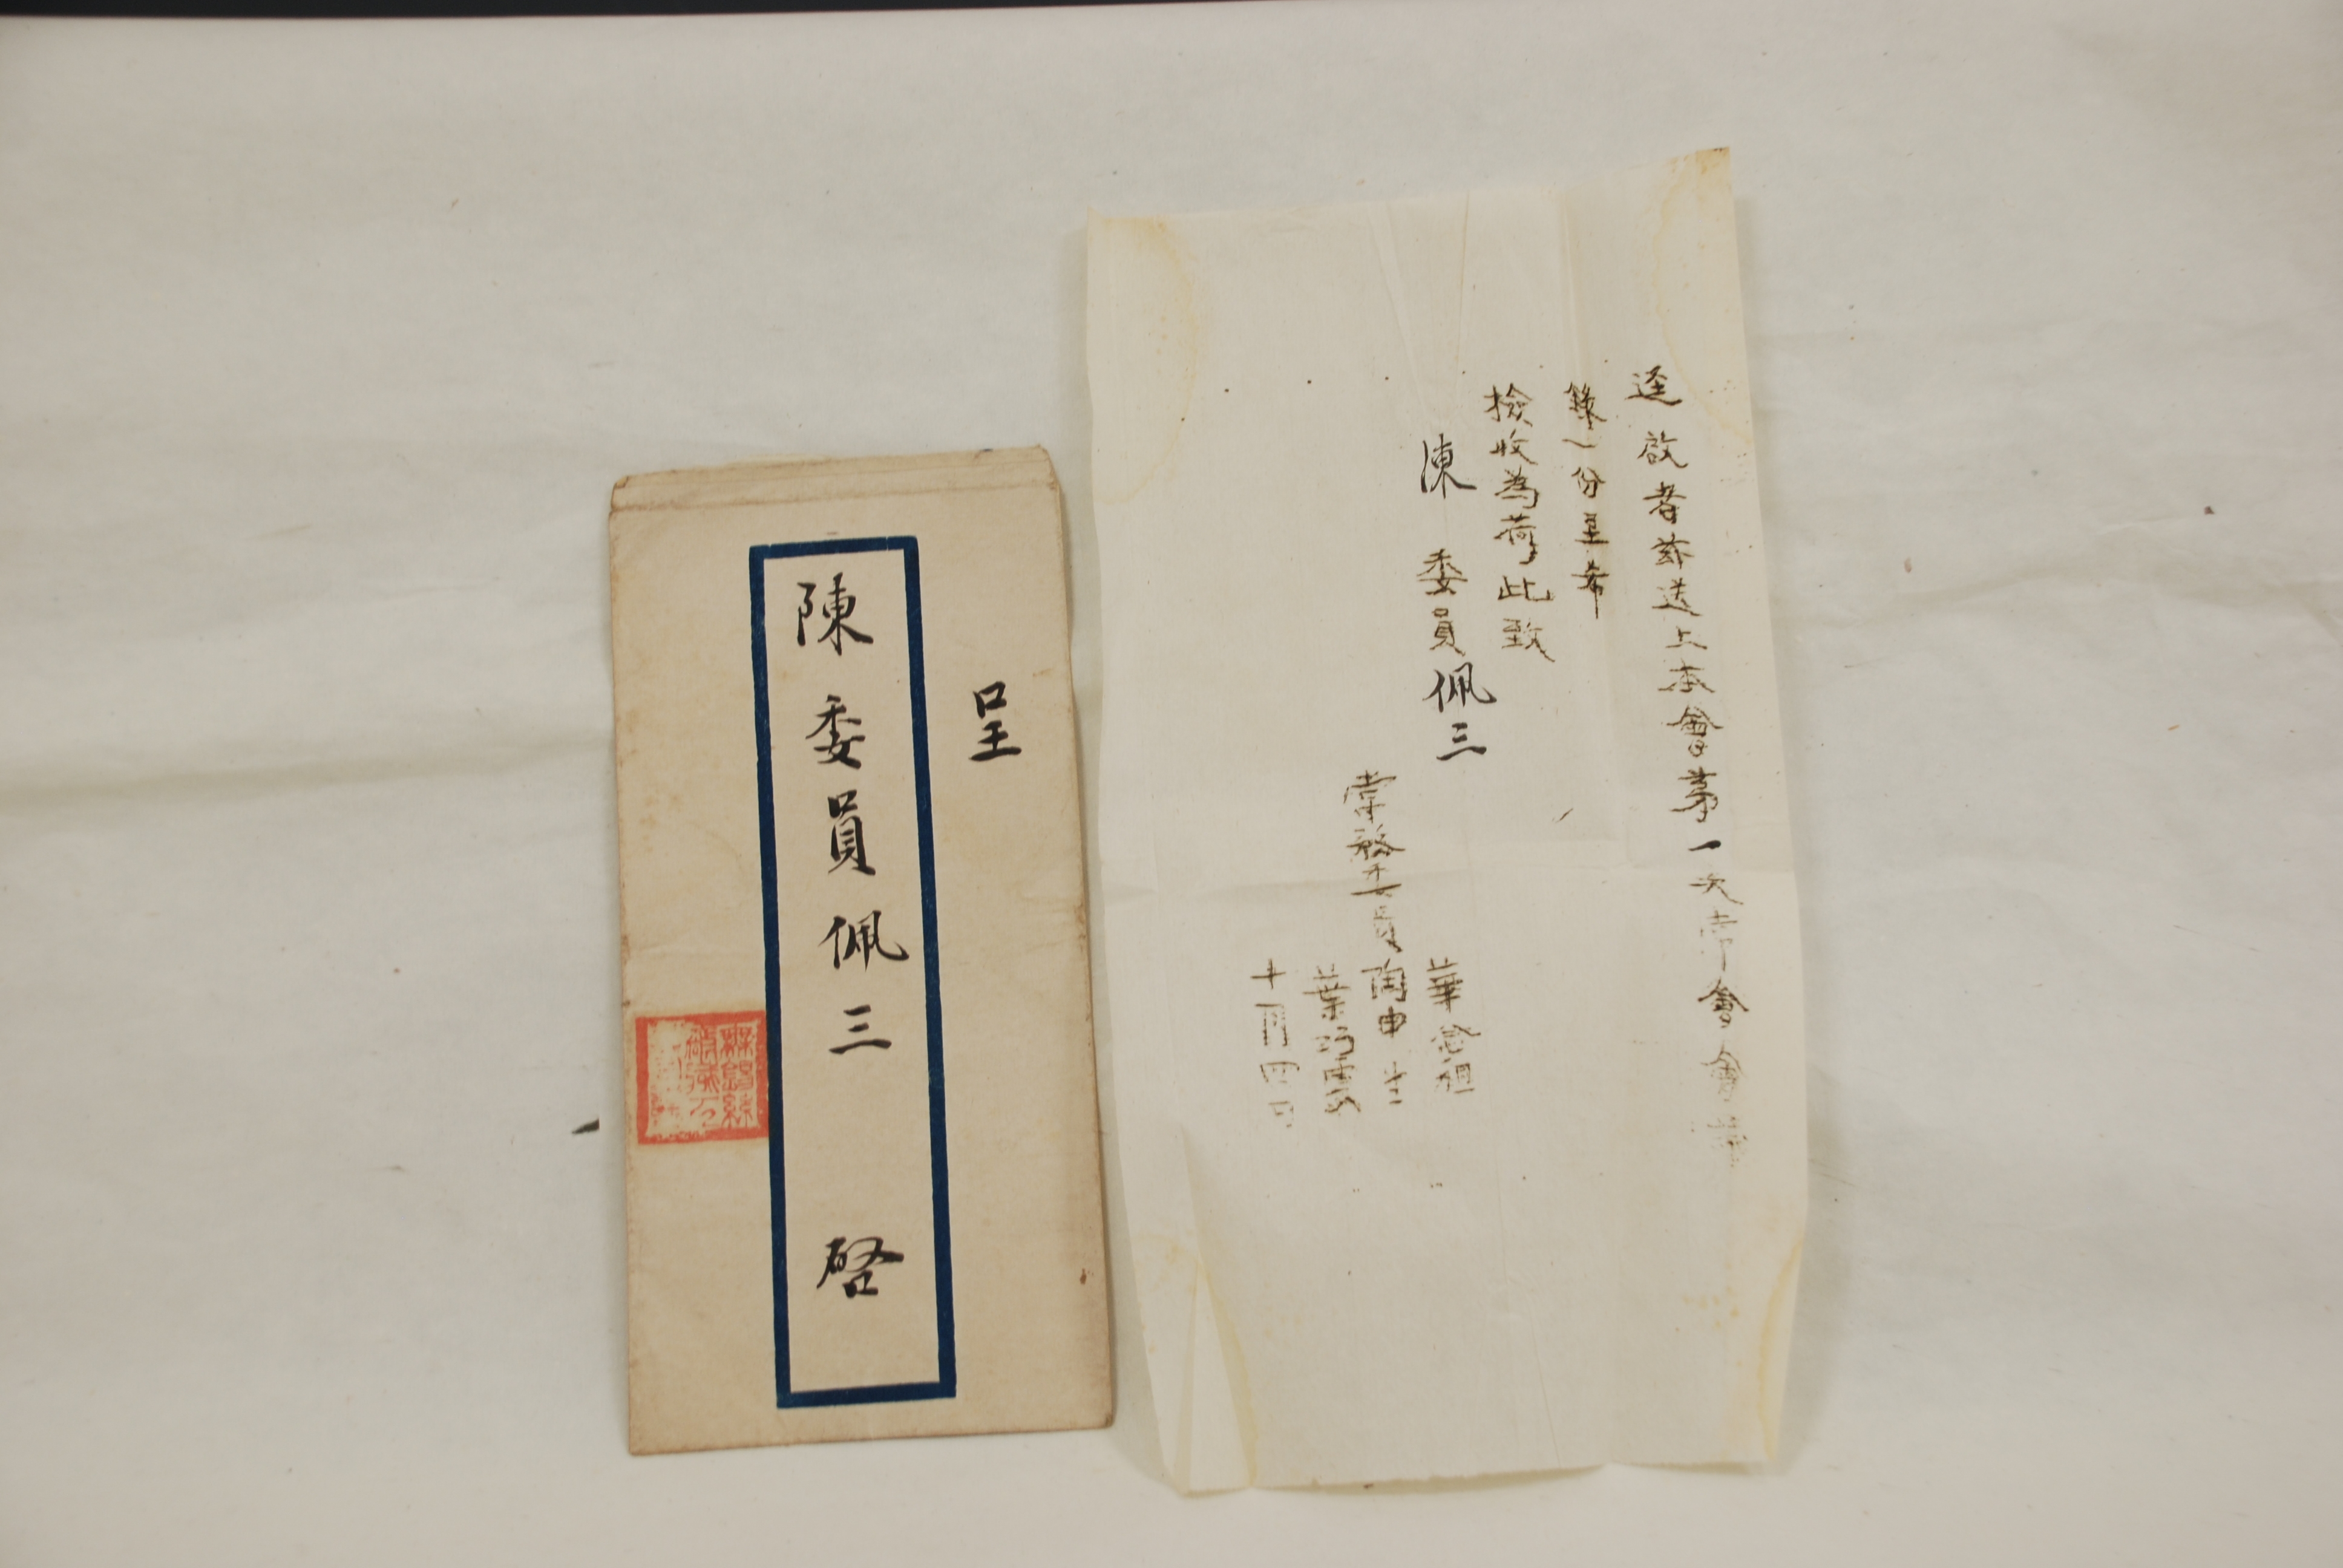 呈
陳委員佩三 啓
無錫絲
逕啟者茲送上本會第一次常會會議
錄一份至希
檢收為荷此致
陳委員佩三
常務委員
華
陶申
葉
十月四日